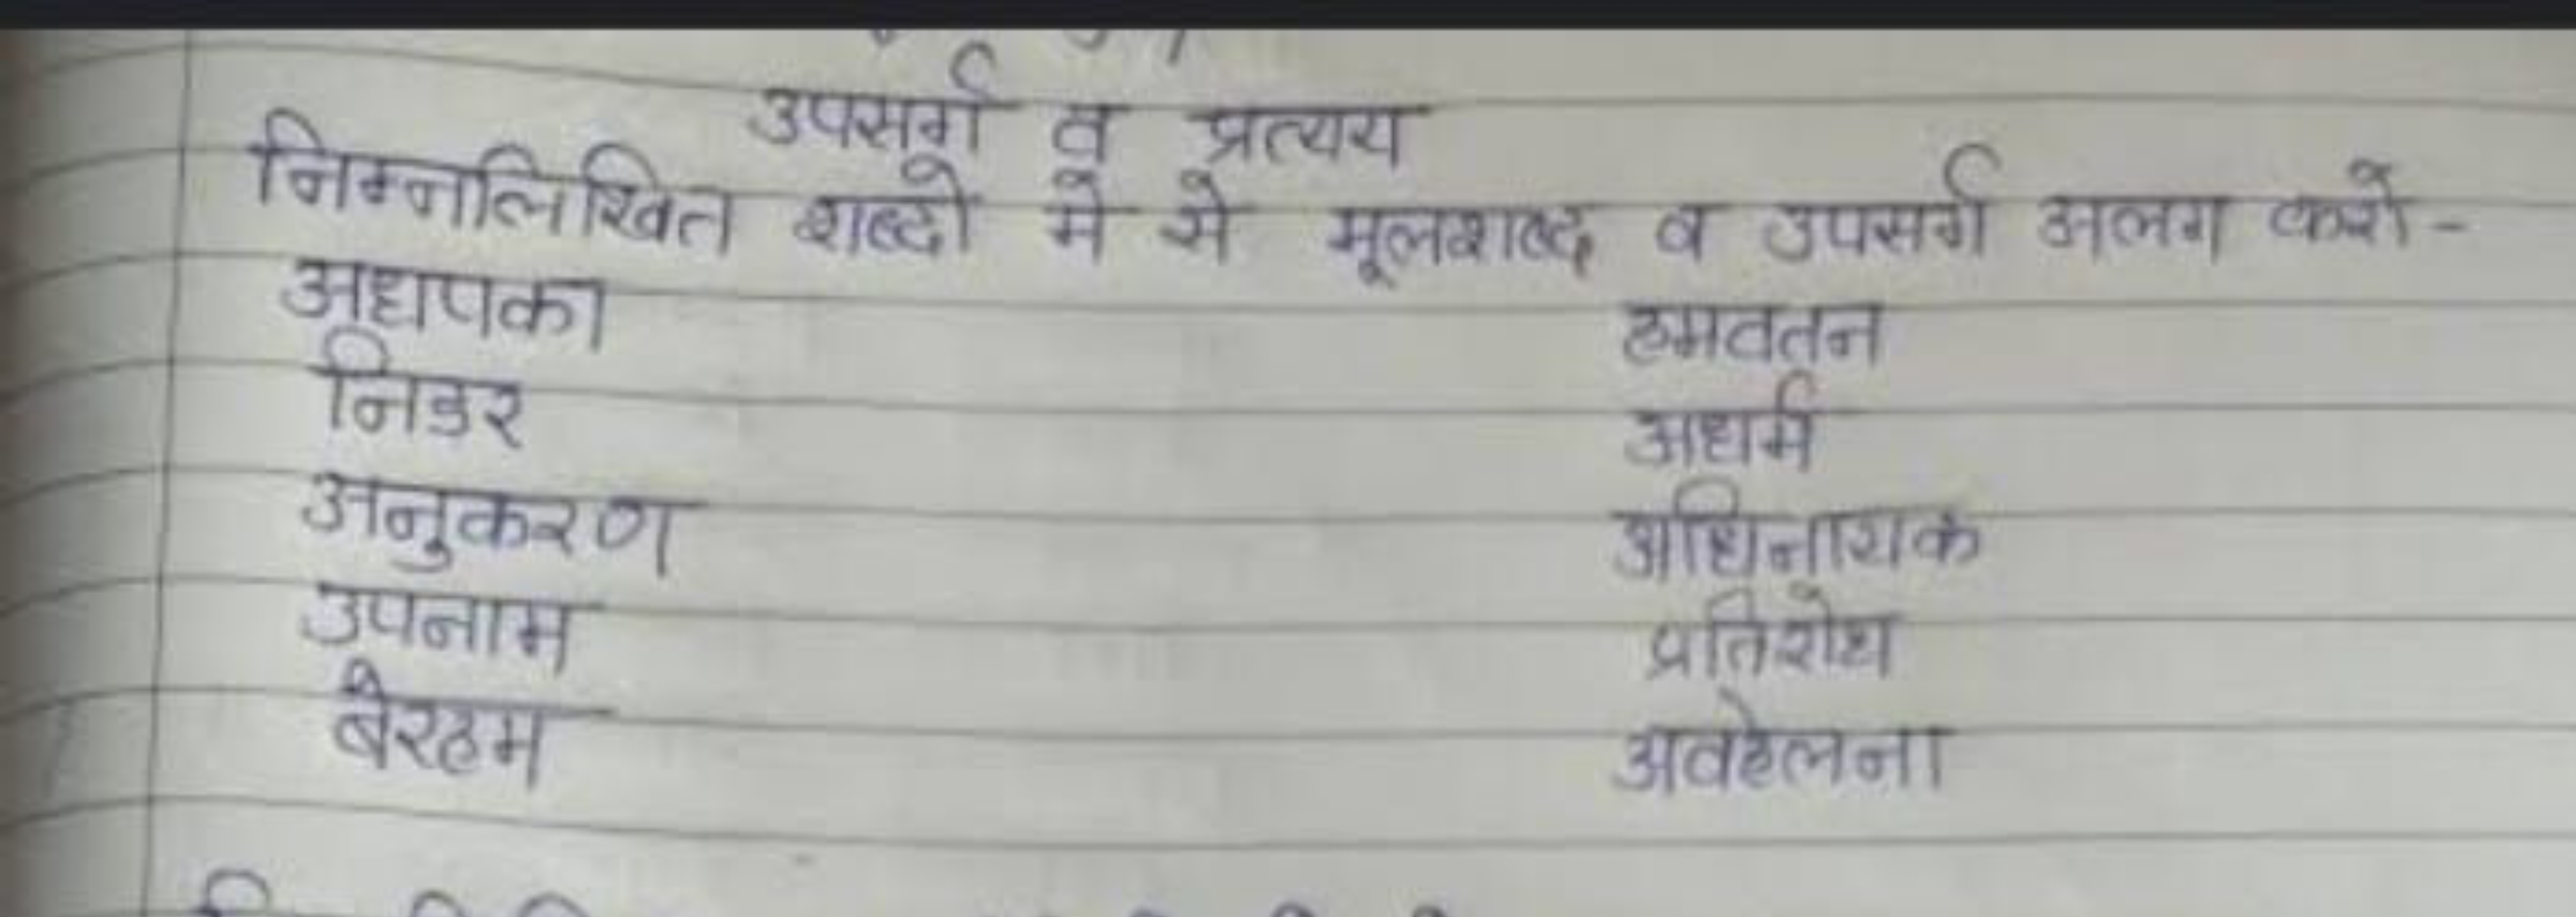 उपसर्ग व प्रत्यय
निम्नलिखित शब्दों में से मूलशब्द व उपसर्ग अलग करों -
अधपका हमवतन
निडर अधर्म
अनुकरण अधिनायक
उपनाम प्रतिरोध
बेरहम अवहेलना